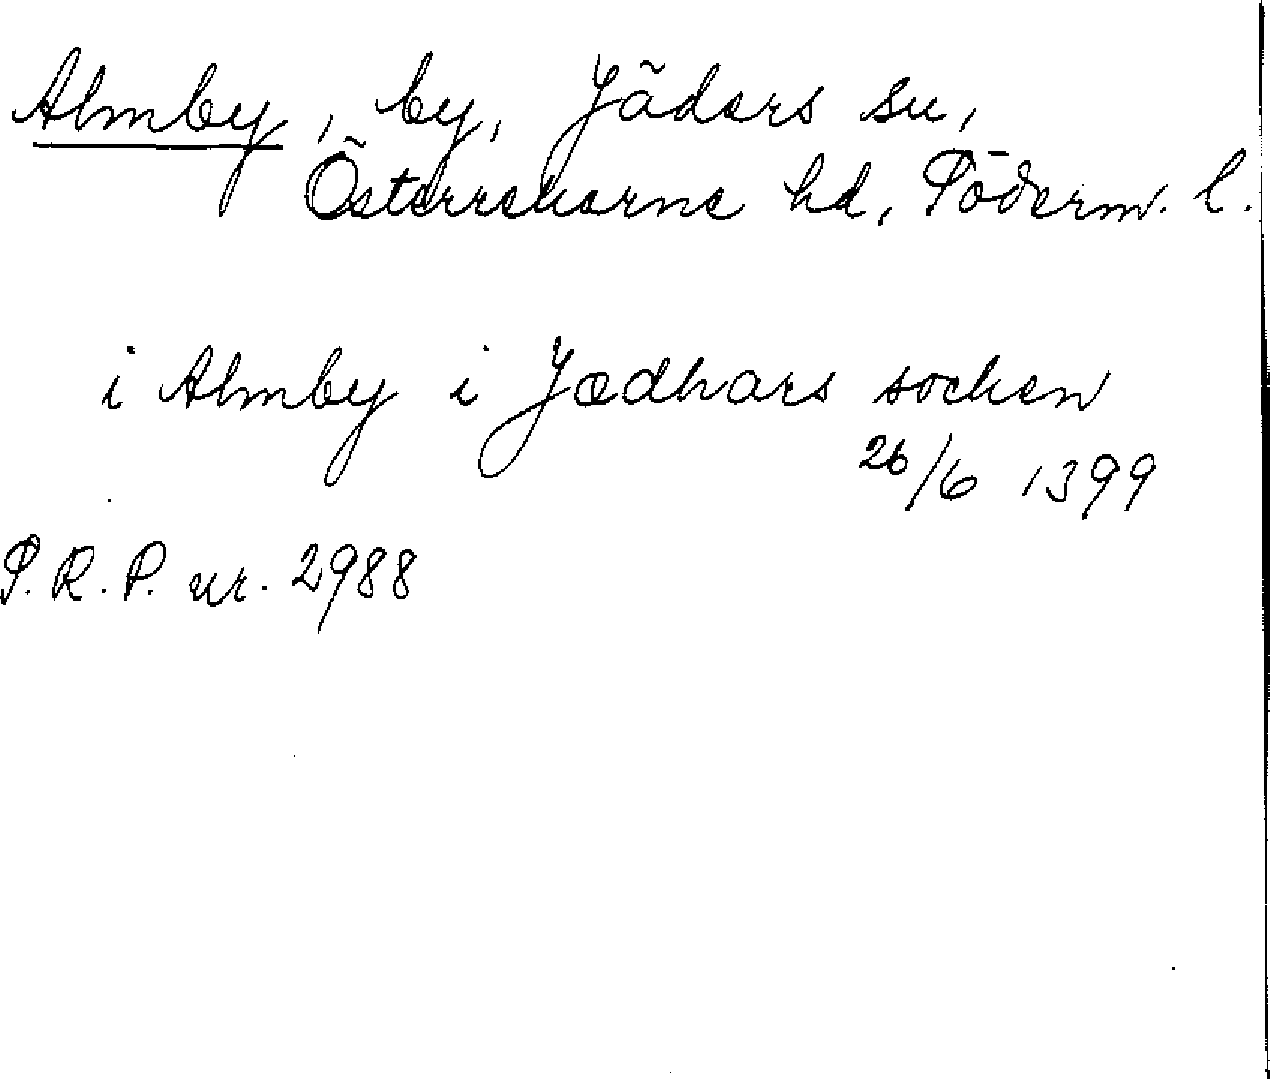 Almby, by, Jäders sn,
Österrekarne hd, Söderm. l.
i Almby i Jædhars soken
26/6 1399
P.R.P. nr. 2988